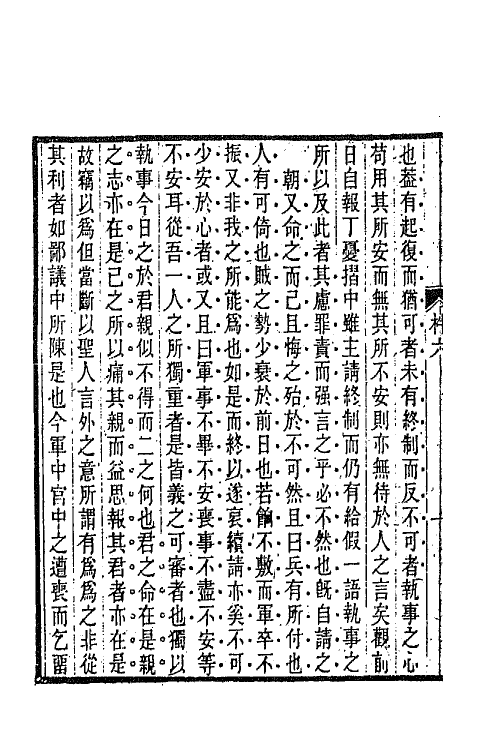 也葢有起復而猶可者未有終制而反不可者執事之心
苟用其所安而無其所不安則亦無待於人之言矣觀前
日自報丁憂摺中雖主請終制而仍有給假一語執事之
所以及此者其慮罪責而强言之乎必不然也既自請之
朝又命之而已且悔之殆於不可然且曰兵有所付也
人有可倚也賊之勢少衰於前日也若餉不敷而軍卒不
振又非我之所能爲也如是而終以遂哀續請亦奚不可
少安於心者或又且曰軍事不畢不安喪事不盡不安等
不安耳從吾一人之所獨重者是皆義之可審者也獨以
執事今日之於君親似不得而二之何也君之命在是親
之志亦在是已之所以痛其親而益思報其君者亦在是
故竊以爲但當斷以聖人言外之意所謂有爲爲之非從
其利者如鄙議中所陳是也今軍中官中之遭喪而乞畱